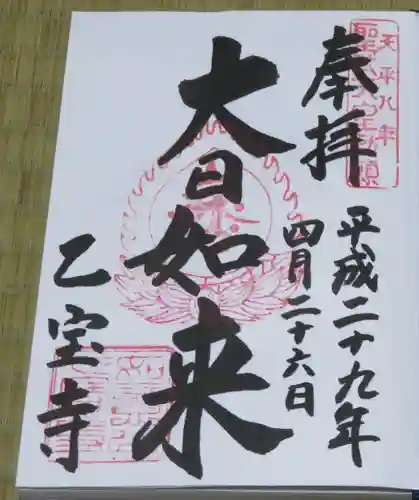 奉拝
天平八年
平成二十九年
四月二十六日
大日如来
乙宝寺